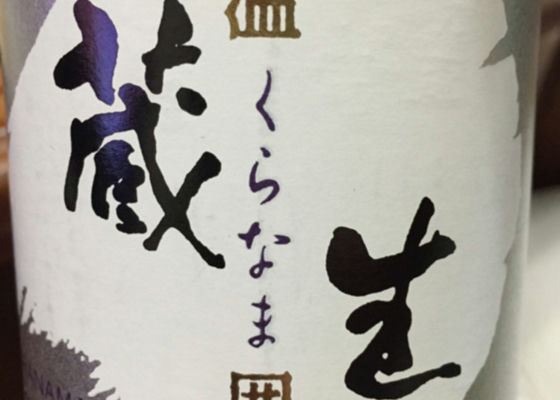 蔵
くらなま
生